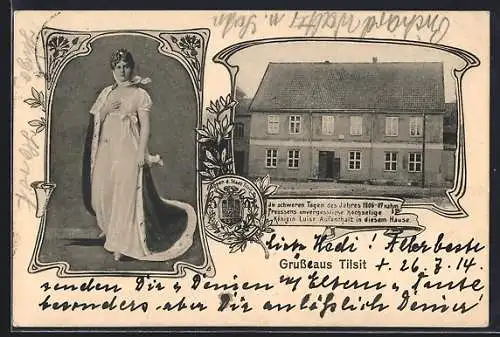 In schweren Tagen des Jahres 1806-07 nahm
Preussens unvergessliche hochselige
Königin Luise Aufenthalt in diesem Hause.
Grüße aus Tilsit
Liebe Hedi! Allerbeste
26. 7. 14.
senden Dir u Deinen Eltern u Tante
besonders aber Dir anläßlich Deiner